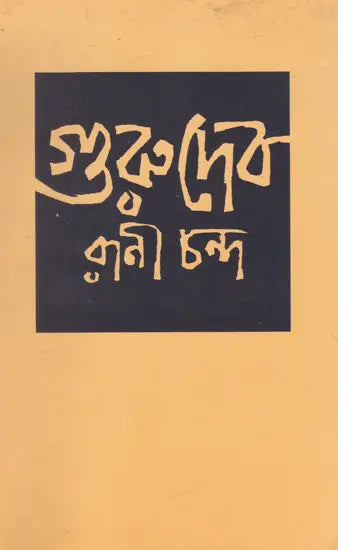 গুরুদেব
রানী চন্দ